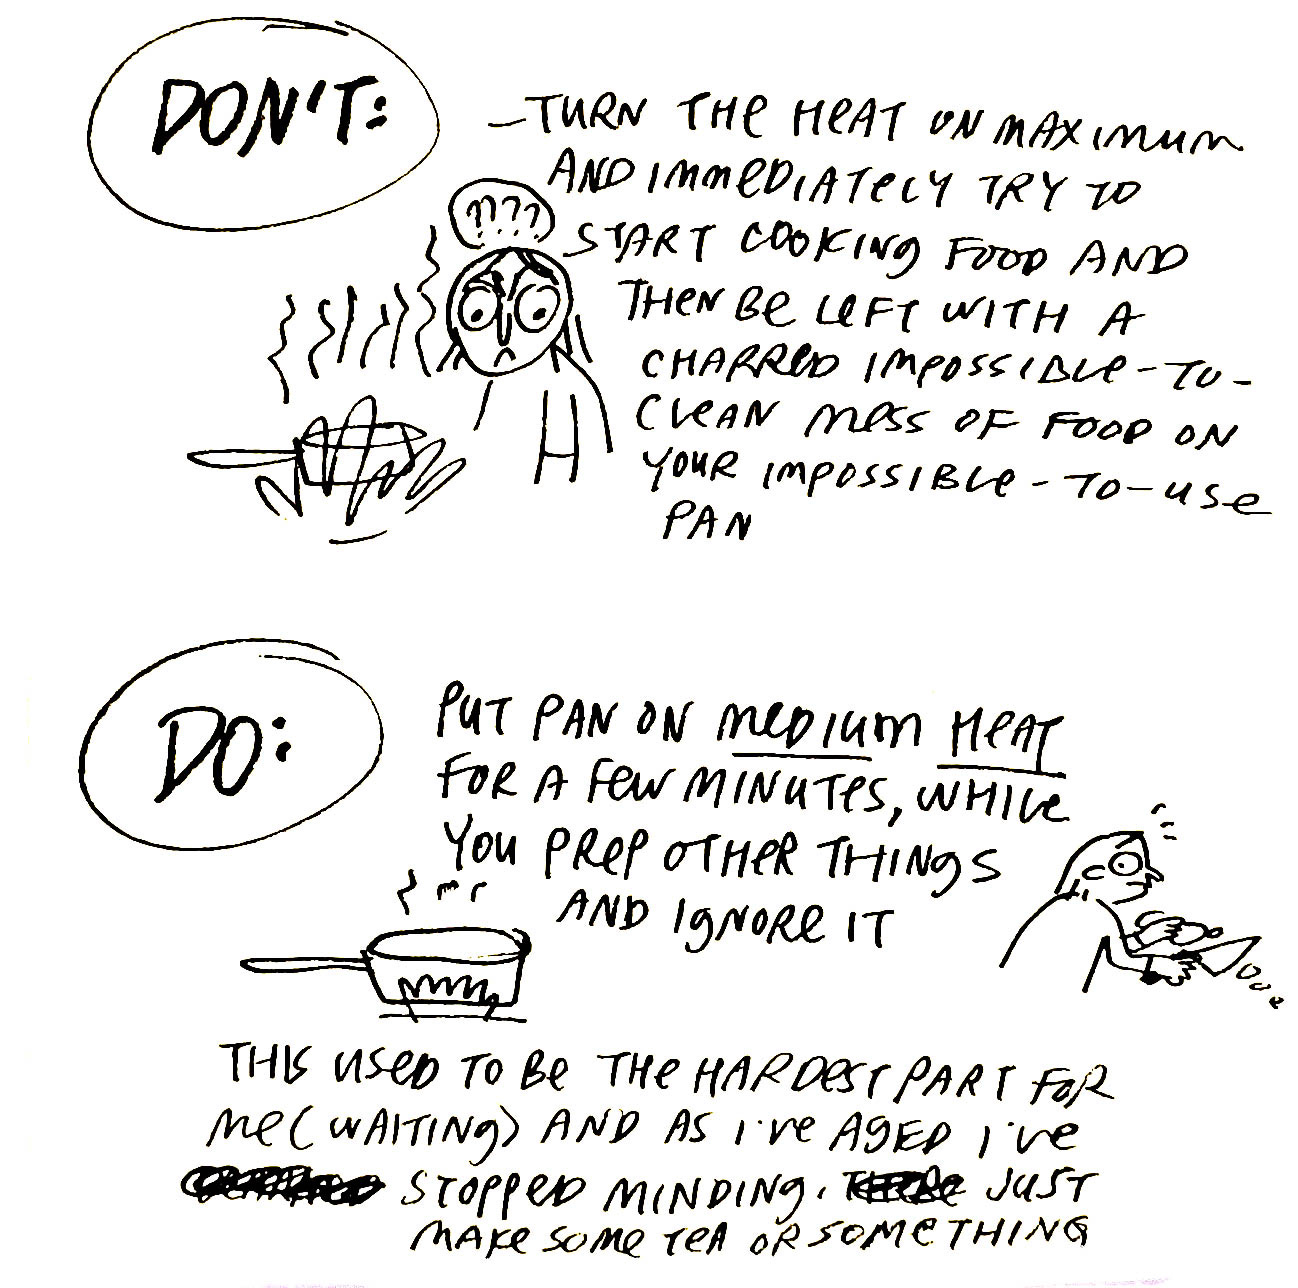 DON'T:
– TURN THE HEAT ON MAXIMUM
AND IMMEDIATELY TRY TO
START COOKING FOOD AND
THEN BE LEFT WITH A
CHARRED IMPOSSIBLE-TO-
CLEAN MESS OF FOOD ON
YOUR IMPOSSIBLE-TO-USE
PAN
????
DO:
PUT PAN ON MEDIUM HEAT
FOR A FEW MINUTES, WHILE
YOU PREP OTHER THINGS
AND IGNORE IT
THIS USED TO BE THE HARDEST PART FOR
ME (WAITING) AND AS I'VE AGED I'VE
STOPPED MINDING. JUST
MAKE SOME TEA OR SOMETHING